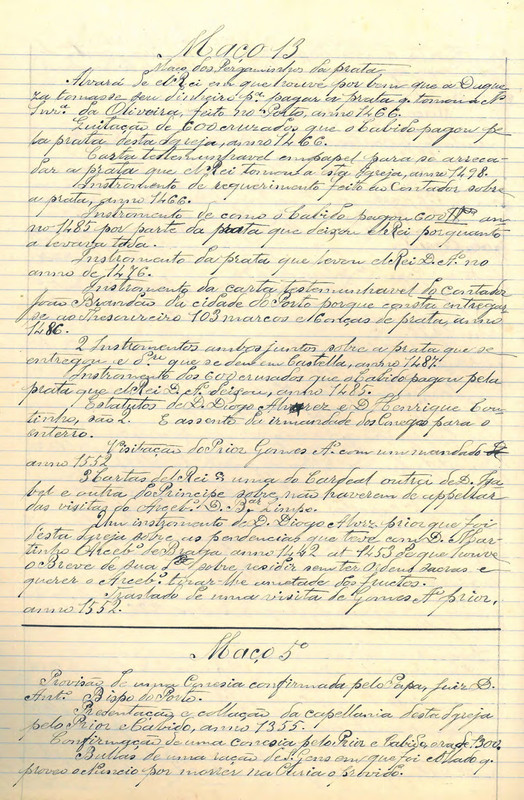 Maço 13
Maço dos Pergaminhos da prata
Alvará de el Rei em que houve por bem que a Duque
za tomasse seu dinheiro pª pagar a prata q. tomou a Nª
Snrª. da Oliveira, feito no Porto, anno 1466.
Quitação de 600 cruzados que o Cabido pagou pe
la prata desta Igreja, anno 1466.
Carta testemunhavel em papel para se arreca-
dar a prata que el Rei tomou a esta Igreja, anno 1498.
Instromento de requerimento feito ao Contador sobre
a prata, anno 1466.
Instromento de como o Cabido pagou 600 an-
no 1485 por parte da prata que deixou el Rei porquanto
a levava toda.
Instromento da prata que levou el Rei D. Aº. no
anno de 1476.
Instromento da carta testemunhavel do Contador
João Brandão da cidade do Porto porque consta entregar
se ao Thesoureiro 103 marcos e 4 onças de prata, anno
1486.
2 Instromentos ambos juntos sobre a prata que se
entregou e que se deu em Castella, anno 1487.
Instromento dos 600 cruzados que o Cabido pagou pela
prata que el Rei D. Aº. deixou, anno 1485.
Estatutos de D. Diogo Alvarez e D. Henrique Cou-
tinho, são 2. E assento da irmandade dos Conegos para o
enterro.
Visitação do Prior Gomes Aº. com um mandado
anno 1552
3 Cartas del Rei e uma do Cardeal outra de D. Isa-
bel e outra do Principe sobre não haverem de appellar
das visitas do Arceb. D. Bar. Limpo.
Um instromento de D. Diogo Alvrz prior que foi
desta Igreja sobre as pendencias que teve com D. Mar-
tinho Arcebº. de Braga, anno 1442 at 1453 do que houve
o Breve de sua Sde sobre residir sem ter Ordens sacras e
querer o Arcebº. tirar-lhe ametade dos fructos.
Traslado de uma visita de Gomes Aº prior,
anno 1552.
Maço 5º
Provisão de uma Conesia confirmada pelo Papa, juiz D.
Antº. Bispo do Porto.
Presentação e collação da capellania desta Igreja
pelo Prior e Cabido, anno 1355.
Confirmação de uma conesia pelo Prior e Cabido, era de 1300.
Bullas de uma ração de S. Gens em que foi collado q.
proveo o Nuncio por morrer na Curia o prbvido.